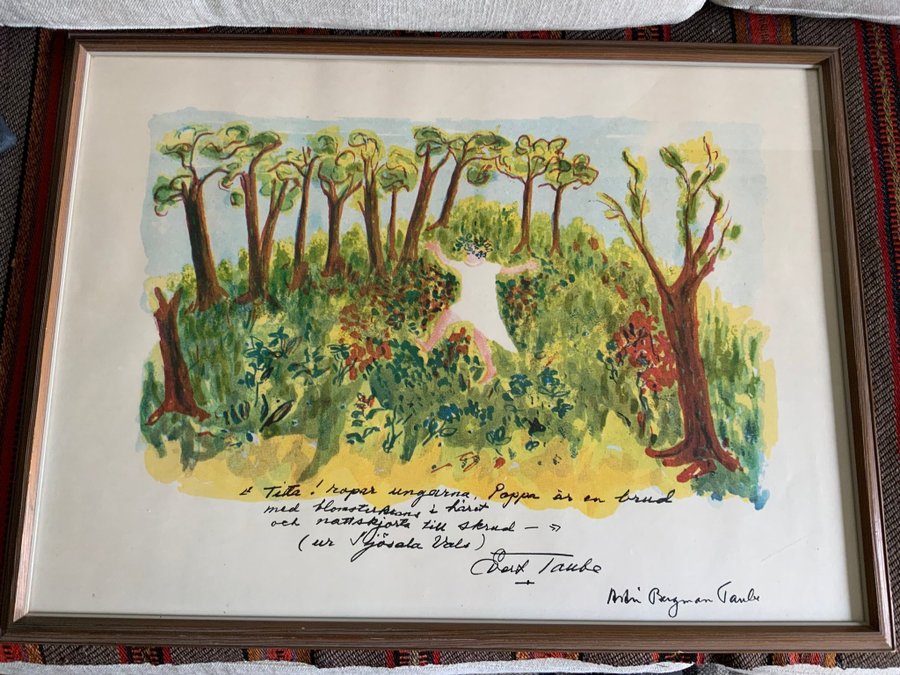 « Titta! ropar ungarna, Pappa är en brud
med blomsterkrans i håret
och nattskjorta till skrud — »
(ur Sjösala Vals)
Evert Taube
Astri Bergman Taube